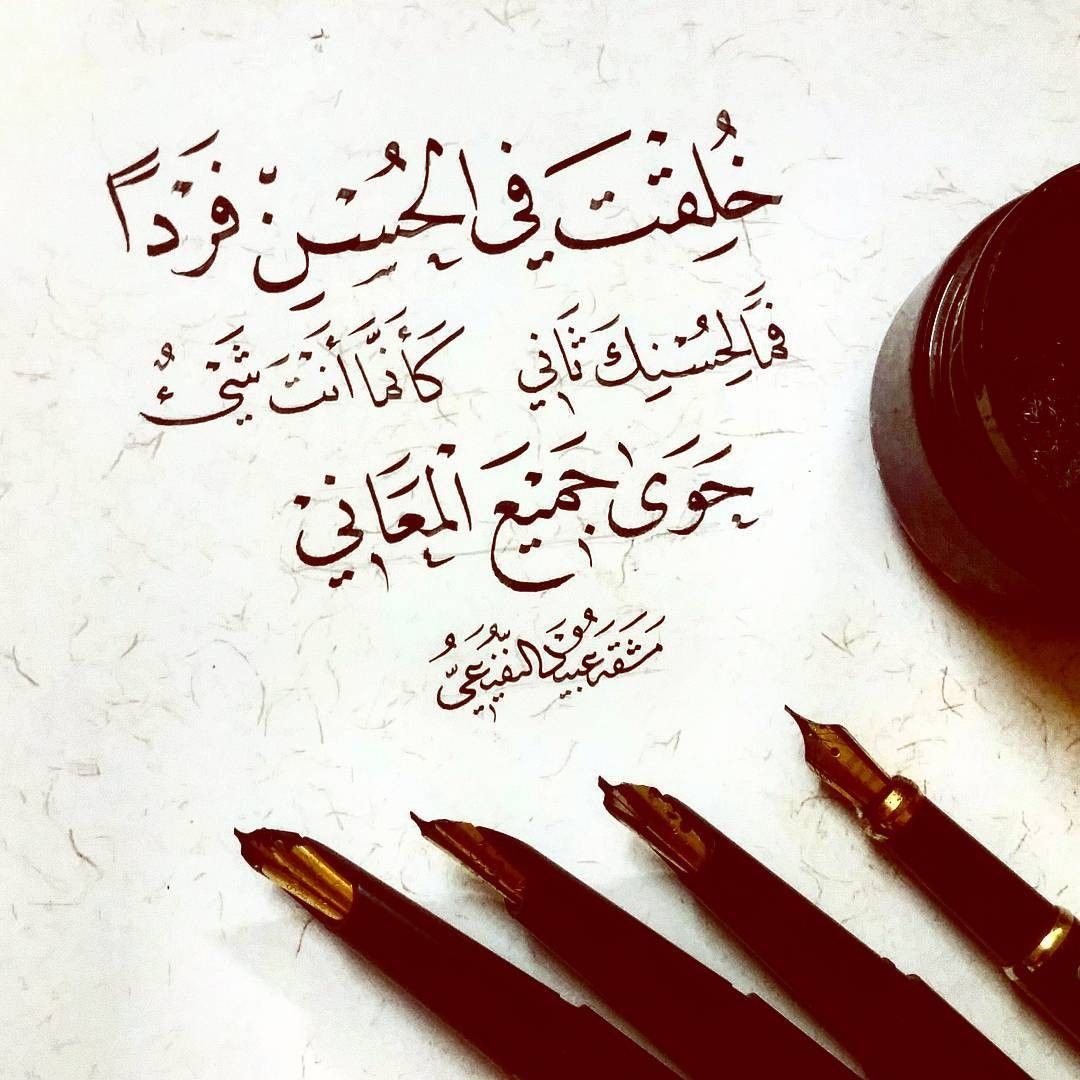 خُلِقْتَ في الحُسْنِ فَرْدًا
فَمَا لِحُسْنِكَ ثَاني كَأَنَّمَا أَنْتَ شَيْءٌ
حَوَى جَمِيْعَ الْمَعَانيْ
مَشَقَهُ عبيد النفيعي